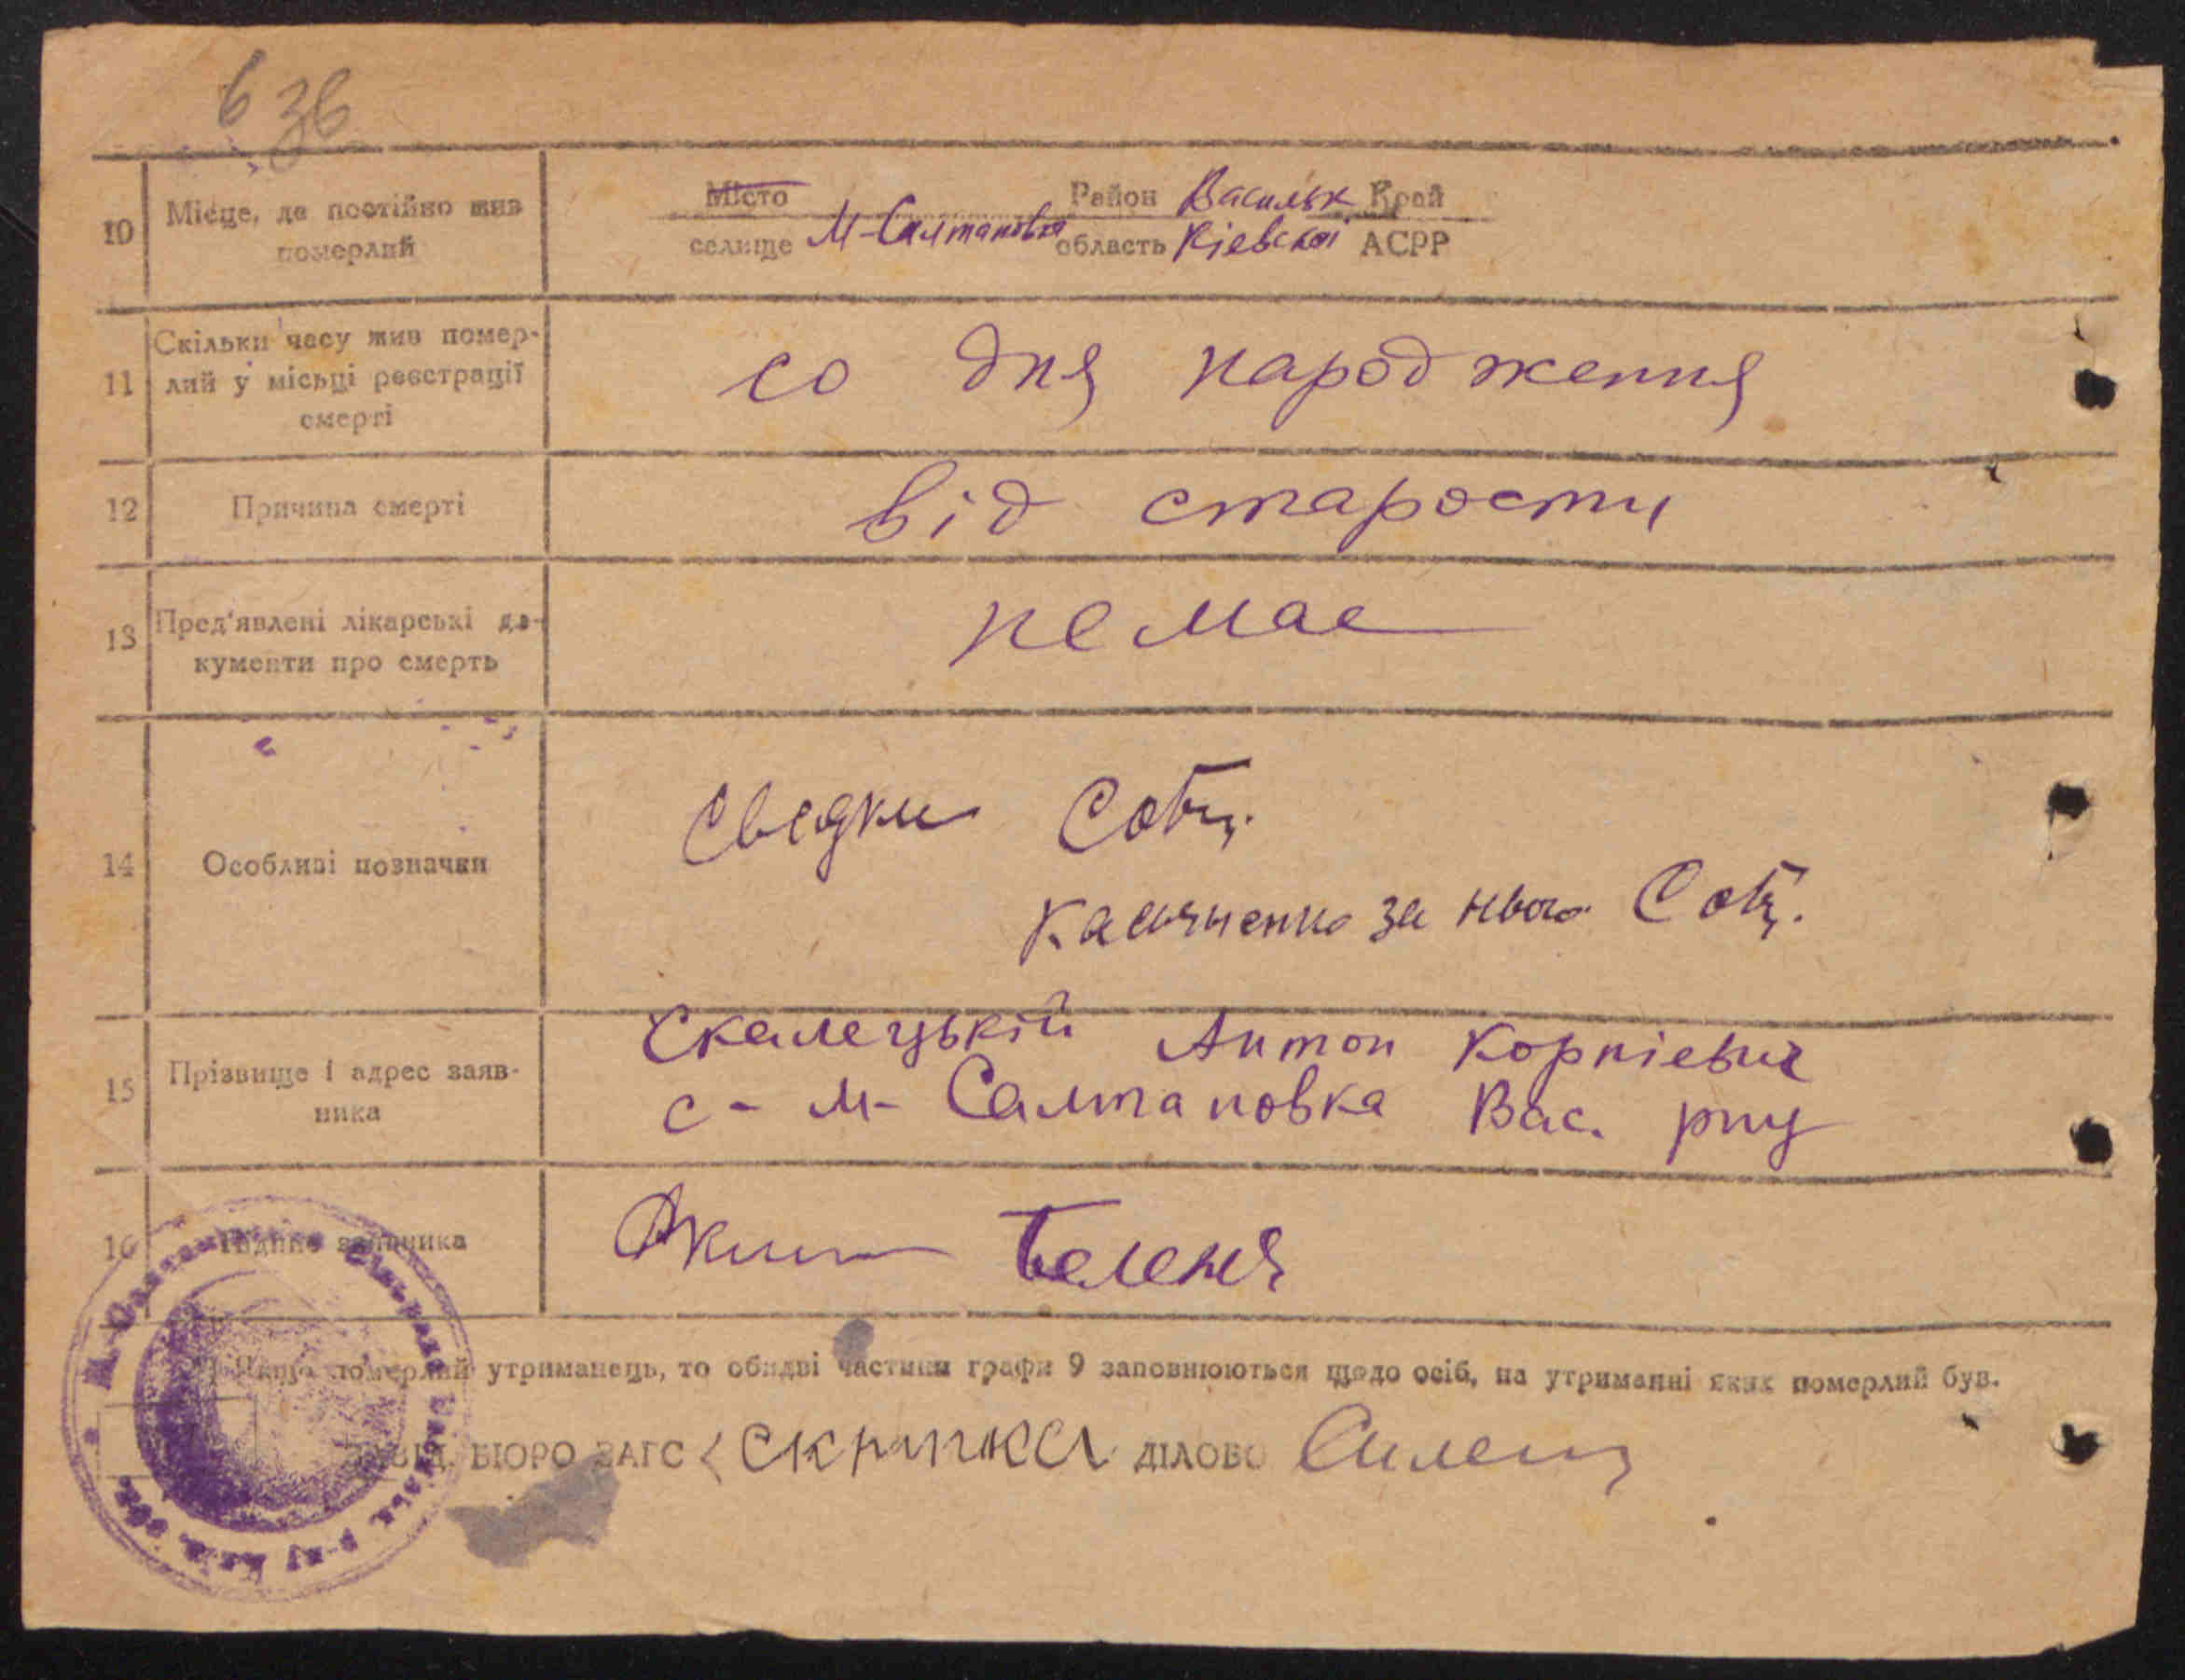 6 36
10 Місце, де постійно жив померлий
Місто Район Васильк Край
селище М-Салтановка область Кіевскої АСРР
11 Скільки часу жив помер-
лий у місьці реєстрації
смерті
со дня народження
12 Причина смерті
від старости
13 Пред'явлені лікарські до-
кументи про смерть
не мае
14 Особливі позначки
Сведки
за нього
15 Прізвище і адрес заяв-
ника
Скалецькій Антон Корніевич
с-М-Салтановка Вас. рну
16 заявника
Якщо померлий утриманець, то обидві частини графи 9 заповнюються щодо осіб, на утриманні яких померлий був.
ЗАВІД. БЮРО ЗАГС Скрипка ДІЛОВО